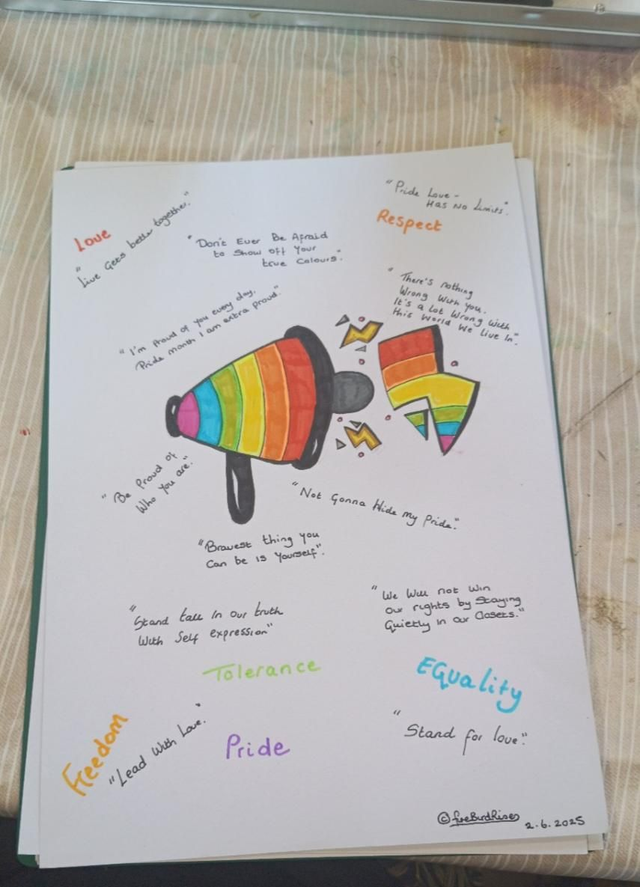 "Pride Love -
Has No Limits".
Love
Respect
"Live Gets better together."
"Don't Ever Be Afraid
to show off Your
true Colours."
"There's nothing
Wrong With you.
It's a lot Wrong With
this World We Live In".
"I'm Proud of you every day.
Pride month I am extra proud."
"Be Proud of
Who you are."
"Not Gonna Hide my Pride."
"Bravest thing You
Can be is Yourself".
"Stand tall In our truth
With Self expression"
"We Will not Win
Our rights by Staying
Quietly in Our Closets."
Tolerance
EQuality
Freedom
"Lead With Love."
Pride
"Stand for love".
© freeBirdRises 2.6.2025